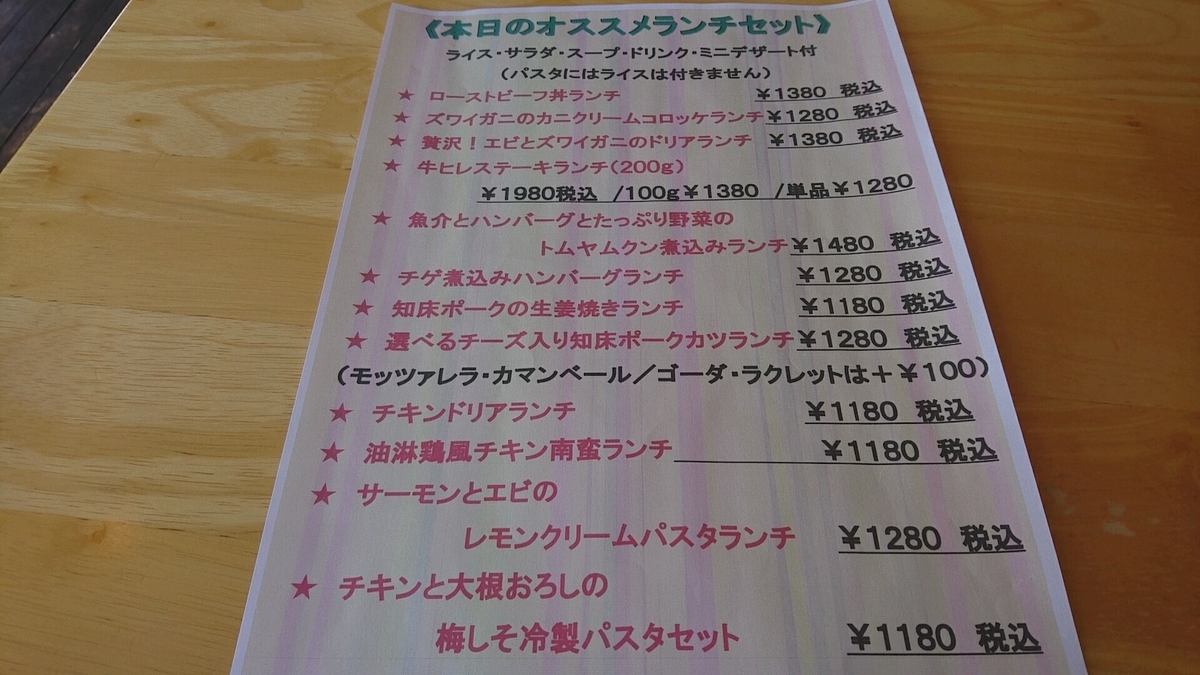 《本日のオススメランチセット》
ライス・サラダ・スープ・ドリンク・ミニデザート付
（パスタにはライスは付きません）
★ ローストビーフ丼ランチ ￥1380 税込
★ ズワイガニのカニクリームコロッケランチ ￥1280 税込
★ 贅沢！エビとズワイガニのドリアランチ ￥1380 税込
★ 牛ヒレステーキランチ（200g）
￥1980税込 /100g￥1380 /単品￥1280
★ 魚介とハンバーグとたっぷり野菜の
トムヤムクン煮込みランチ ￥1480 税込
★ チゲ煮込みハンバーグランチ ￥1280 税込
★ 知床ポークの生姜焼きランチ ￥1180 税込
★ 選べるチーズ入り知床ポークカツランチ ￥1280 税込
（モッツァレラ・カマンベール／ゴーダ・ラクレットは＋￥100）
★ チキンドリアランチ ￥1180 税込
★ 油淋鶏風チキン南蛮ランチ ￥1180 税込
★ サーモンとエビの
レモンクリームパスタランチ ￥1280 税込
★ チキンと大根おろしの
梅しそ冷製パスタセット ￥1180 税込